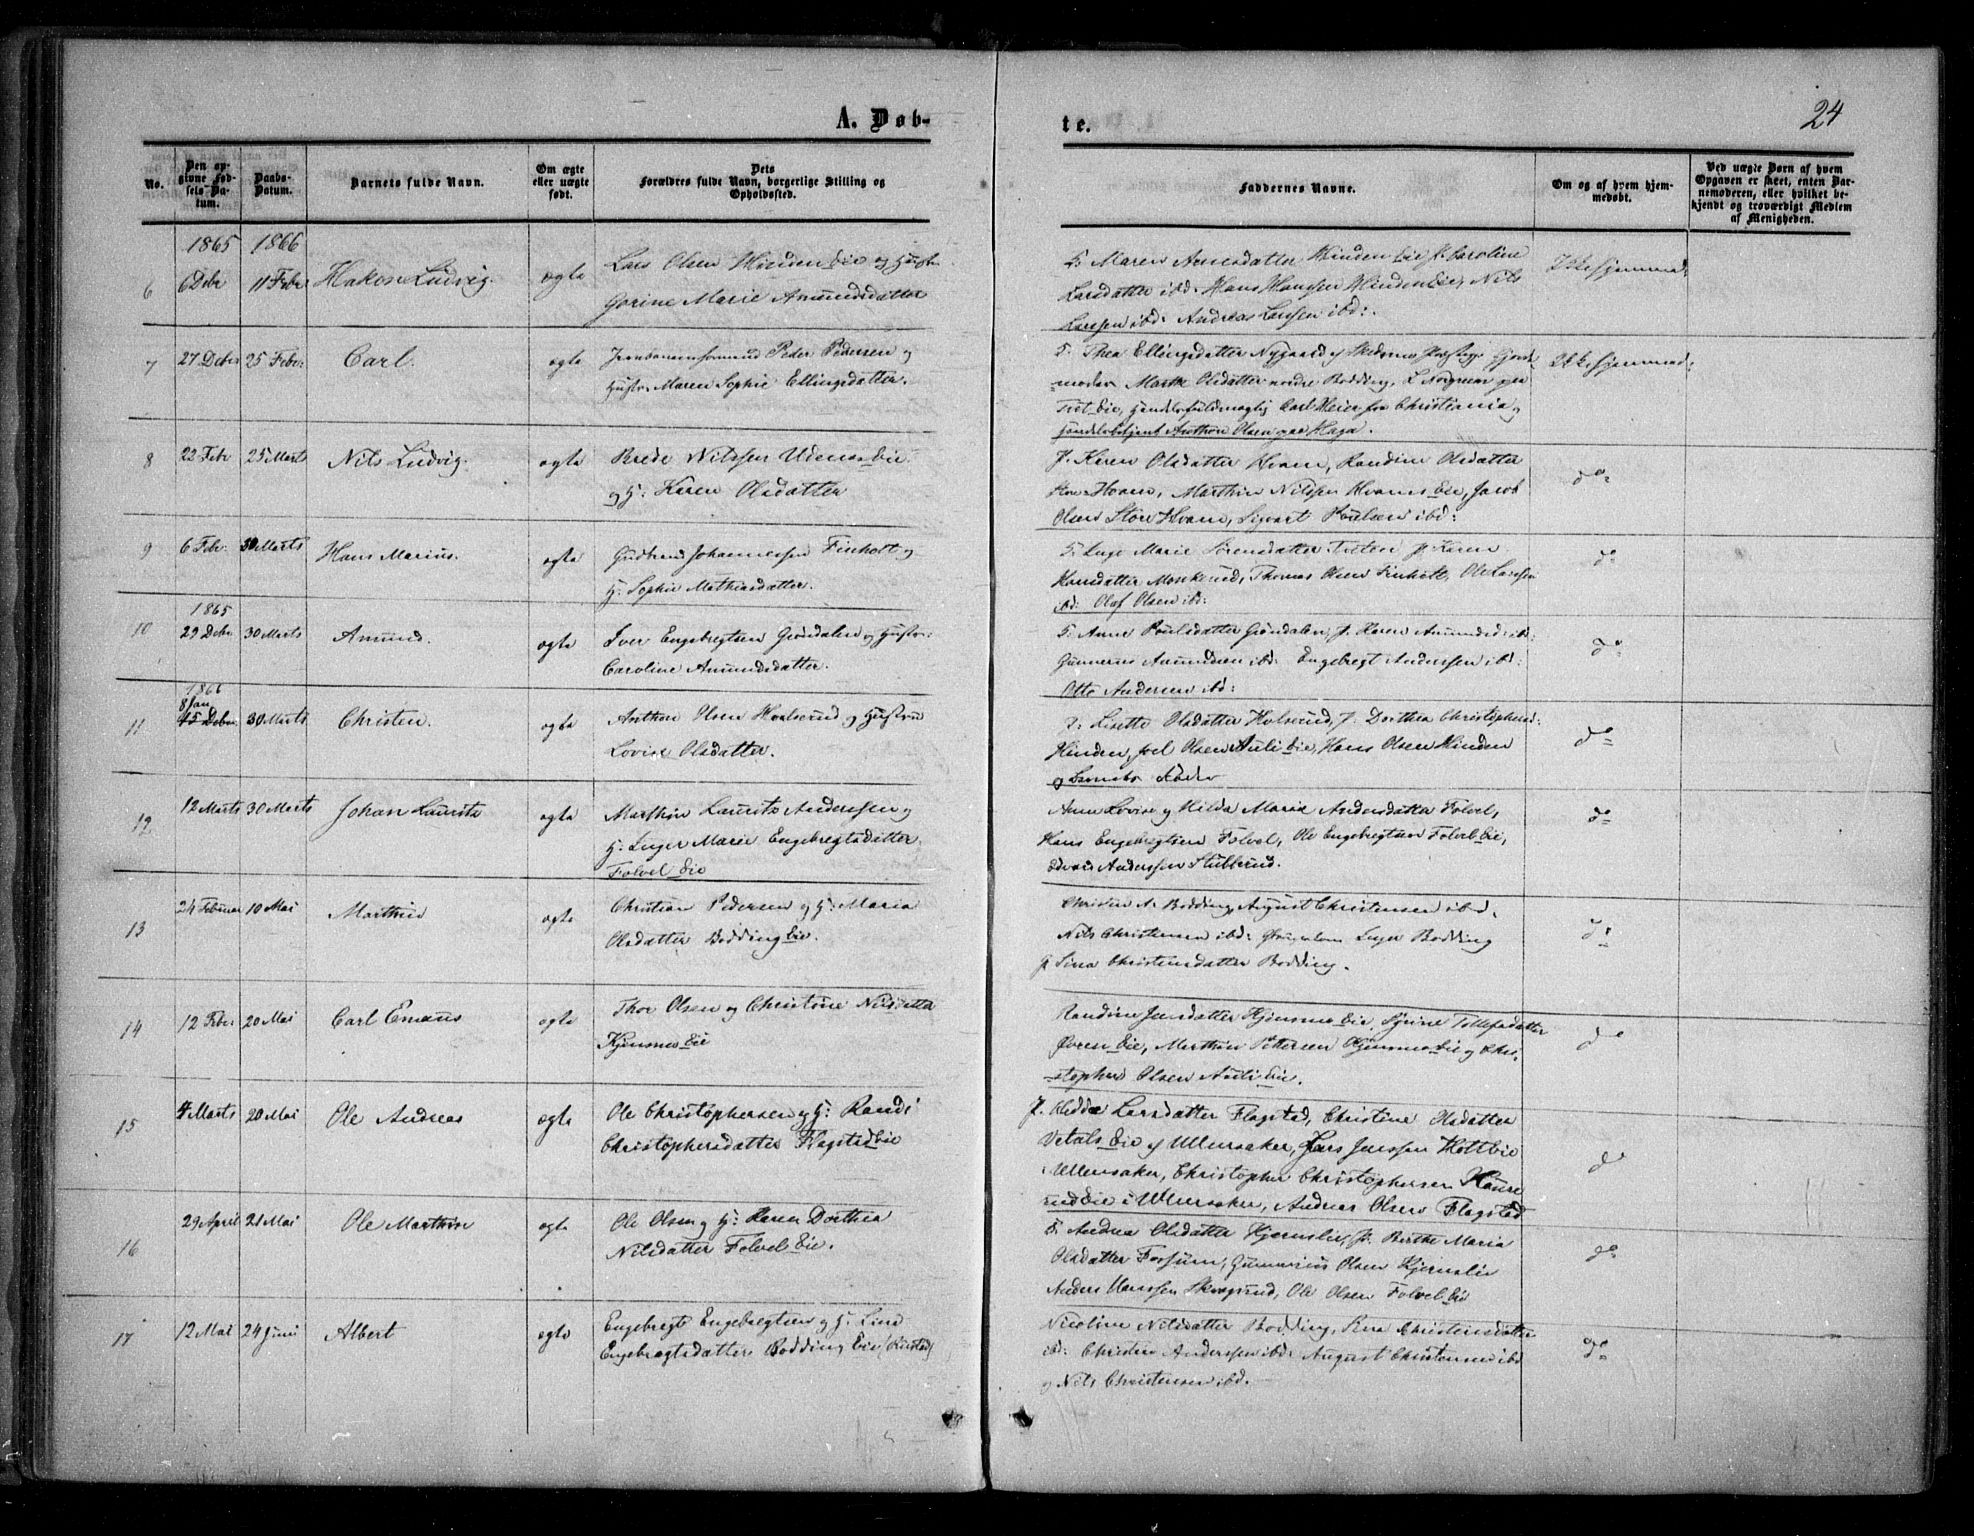 24
A. Døb-
te.
No.
Den op-
givne Fød-
sels-Da-
tum.
Daabs-
Datum.
Barnets fulde Navn.
Om ægte
eller uægte
født.
Dets
Forældres fulde Navn, borgerlige Stilling og
Opholdssted.
Faddernes Navne.
Om og af hvem hjem-
medøbt.
Ved uægte Børn af hvem
Opgaven er skeet, enten Bar-
nemoderen, eller hvilket be-
kjendt og troværdigt Medlem
af Menigheden.
1865 1866
6 6 Debr 11 Febr Hakon Ludvig. ægte
Lars Olsen Hinden Eie og Hustr
Gorine Marie Amundsdatter
F. Maren Arnesdatter Hinden Eie P. Caroline
Larsdatter ibd. Hans Hanssen Hinden Eie, Nils
Larsen ibd: Andreas Larssen ibd:.
Ikke hjemmed:
7 27 Debr 25 Febr: Carl. ægte
Jernbaneformand Peder Pedersen og
Hustr. Maren Sophie Ellingsdatter.
F. Thea Ellingsdatter Nygaard af Skedsmo Præstegj. Gjord-
moder Marthe Olsdatter nordre Bodding, L. Norgreen paa
Eie, Handelsfuldmægtig Carl Meier fra Christiania og
Handelsbetjent Anthon Olsen paa Haga.
Ikke hjemmed:
8 22 Febr 25 Marts Nils Ludvig. ægte
Brede Nilssen Udenes Eie.
og H: Karen Olsdatter
P. Karen Olsdatter Hvam, Randine Olsdatter
Store Hvam, Marthin Nilssen Hvams Eie, Jacob
Olsen Store Hvam, Sigvart Poulsen ibd:
do
9 6 Febr. 30 Marts Hans Marius. ægte
Gudbrand Johannessen Finholt og
H. Sophie Mathiasdatter.
F. Inge Marie Sørensdatter P. Karen
Hansdatter Monkerud, Thomas Olsen Finholt, Ole Larssen
ibd: Olaf Olsen ibd:
do
1865
10 29 Debr 30 Marts Amund. ægte
Iver Engebregtsen Grøndalen og Hustr:
Caroline Amundsdatter.
F. Anne Poulsdatter Grøndalen, P. Karen Amundsd: ibd:
Gunnerus Amundsen ibd: Engebregt Anderssen ibd:
Otto Andersen ibd:
do
1866
8 Jan
11 15 Debr 30 Marts Christen. ægte
Anthon Olsen Hvalserud og Hustru
Lovise Olsdatter.
F: Lisette Olsdatter Holserud, P. Dorthea Christophersd:
Hinden, Joel Olsen Auli Eie, Hans Olsen Hinden
og
do
12 12 Marts 30 Marts Johan Laurits ægte
Marthin Laurits Anderssen og
H. Inger Marie Engebregtsdatter
Folvel Eie
Anne Lovise og Hilda Marie Andersdatter Folvel,
Hans Engebregtsen Folvel, Ole Engebregtsen Folvel Eie,
Edvard Anderssen Stubberud.
do
13 24 Februar 10 Mai Marthin ægte
Christian Pedersen og H: Maria
Olsdatter Bodding Eie.
Christen A. Bodding, August Christensen ibd.
Nils Christensen ibd: Inger Bodding
P. Sina Christensdatter Bodding.
do
14 12 Febr 20 Mai Carl Emaus ægte
Thor Olsen og Christine Nilsdatter
Kjønmo Eie
Randine Jensdatter Kjønmo Eie, Syrine Tollefsdatter
Øvren Eie, Marthin Pettersen Kjønmo Eie og Chri-
stopher Olsen Auli Eie.
do
15 4 Marts 20 Mai Ole Andreas ægte
Ole Christophersen og H: Randi
Christophersdatter Flagstad Eie
P. Hedda Larsdatter Flagstad, Christine Olsdatter
Vetals Eie af Ullensaker, Lars Jenssen Holt Eie
i Ullensaker, Christopher Christophersen
rud Eie i Ullensaker, Andreas Olsen Flagstad
do
16 29 April 21 Mai Ole Marthin ægte
Ole Olsen og H: Karen Dorthea
Nilsdatter Folvel Eie.
F. Andrea Olsdatter Kjernslie, P. Berthe Maria
Olsdatter Fossum, Gunnerius Olsen Kjernslie
Anders Hanssen Skovgrud, Ole Olsen Folvel Eie
do
17 12 Mai 24 Juni Albert ægte
Engebregt Engebregtsen og H. Lina
Engebregtsdatter Bodding Eie
Nicoline Nilsdatter Bodding, Sina Christensdatter
ibd: Christen Anderssen ibd: August Christensen ibd
og Nils Christensen ibd.
do